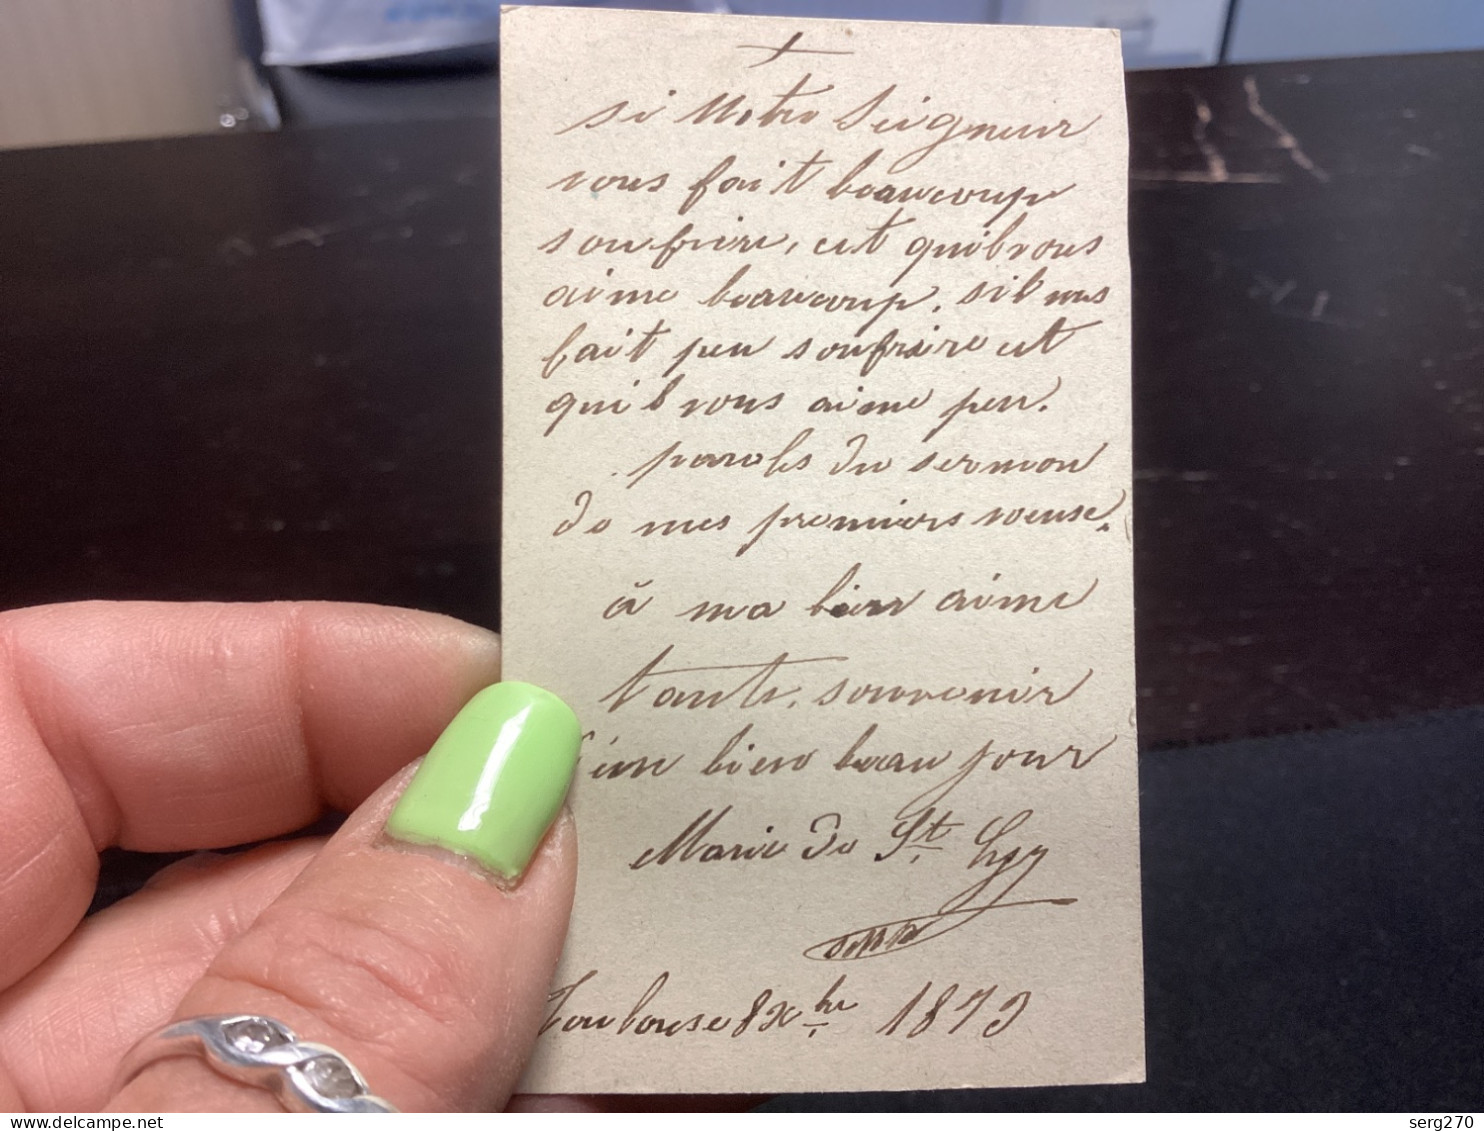 si Notre Seigneur
vous fait beaucoup
soufrire, cet quil vous
aime beaucoup, sil vous
fait peu soufrire cet
quil vous aime peu.
paroles du sermon
de mes premiers voeuse.
à ma bien aimé
tante, souvenir
d'un bien beau jour
Marie de St.
Toulouse 8 Xbre 1873
delcampe.net
serg270